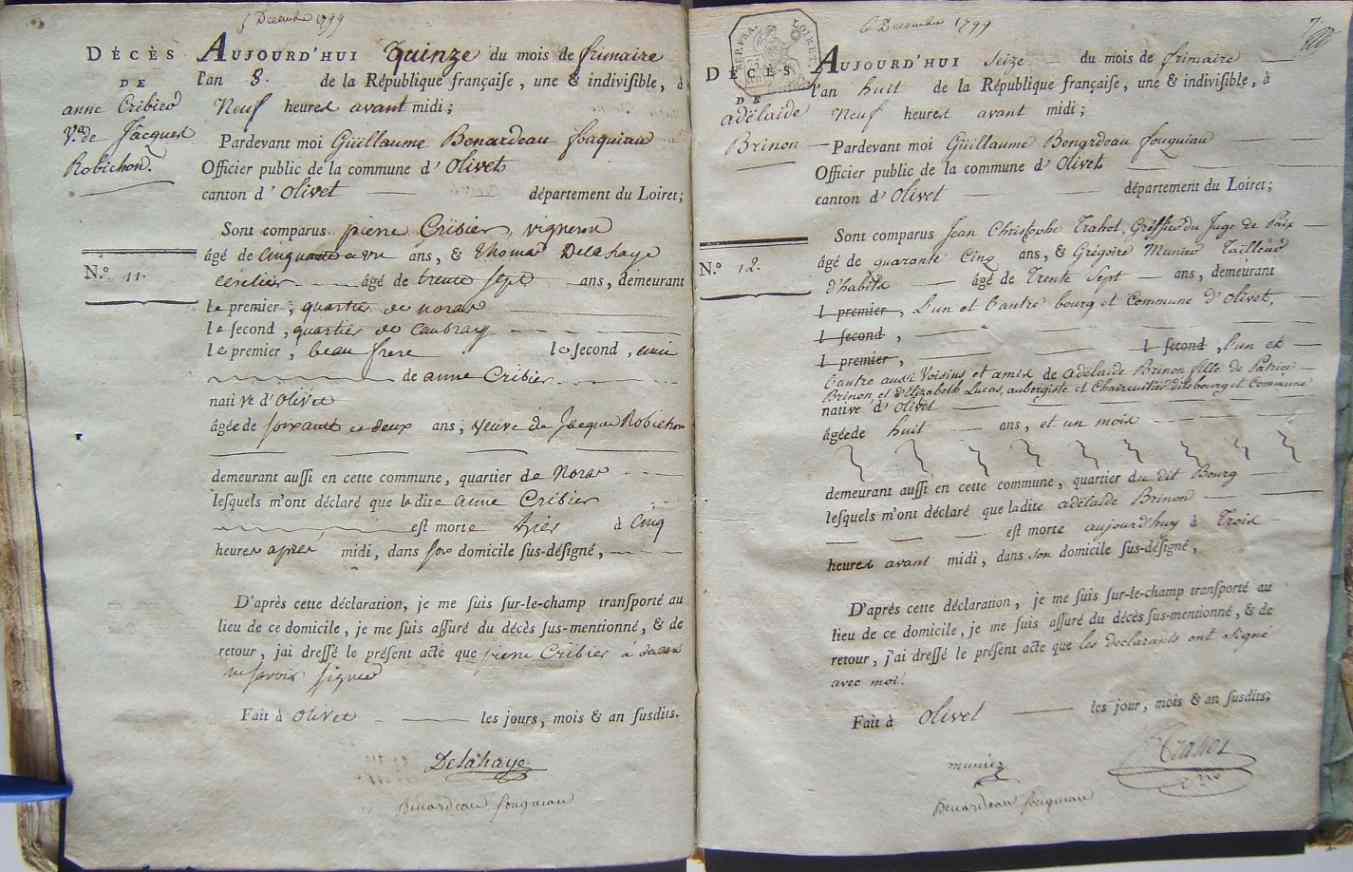 5 Decembre 1799
DÉCÈS
DE
anne Cribier
Ve. de Jacques
Robichon.
N.° 11.
AUJOURD'HUI Quinze du mois de frimaire
l'an 8. de la République françaiſe, une & indiviſible, à
Neuf heures avant midi;
Pardevant moi Güillaume Benardeau fouquiau
Officier public de la commune d'Olivet
canton d'Olivet département du Loiret;
Sont comparus pierre Cribier, vigneron
âgé de Cinquante ans, & Thomas Delahaye
âgé de trente sept ans, demeurant
le premier, quartier de noras
le ſecond, quartier de Caubray
le premier, beau frere le ſecond, ami
de anne Cribier
native d'Olivet
âgée de soixante et deux ans, veuve de Jacques Robichon
demeurant auſſi en cette commune, quartier de Noras
leſquels m'ont déclaré que ladite anne Cribier
est morte hier à Cinq
heures après midi, dans son domicile ſus-déſigné,
D'après cette déclaration, je me ſuis ſur-le-champ tranſporté au
lieu de ce domicile, je me ſuis aſſuré du décès ſus-mentionné, & de
retour, jai dreſſé le préſent acte que pierre Cribier a déclaré
ne savoir signer
Fait à Olivet les jours, mois & an ſuſdits.
Delahaye
Benardeau fouquiau
6 Decembre 1799
DÉCÈS
DE
adélaide
Brinon
N.° 12.
AUJOURD'HUI Seize du mois de frimaire
l'an huit de la République françaiſe, une & indiviſible, à
Neuf heures avant midi;
Pardevant moi Güillaume Benardeau fouquiau
Officier public de la commune d'Olivet
canton d'Olivet département du Loiret;
Sont comparus Jean Christophe Trahot, Greffier du Juge de Paix
âgé de quarante Cinq ans, & Grégoire Munier Tailleur
d'habits âgé de Trente Sept ans, demeurant
l premier, L'un et L'autre bourg et Commune d'Olivet,
l ſecond,
l premier, l ſecond, L'un et
L'autre aussi Voisins et amis de adélaide Brinon fille de Patrice
Brinon, et d'Elizabeth Lucas, aubergiste et Chaircuitier dit bourg et Commune
native d'Olivet
âgée de huit ans, et un mois
demeurant auſſi en cette commune, quartier du dit Bourg
leſquels m'ont déclaré que ladite adélaide Brinon
est morte aujourd'huy à Trois
heures avant midi, dans son domicile ſus-déſigné,
D'après cette déclaration, je me ſuis ſur-le-champ tranſporté au
lieu de ce domicile, je me ſuis aſſuré du décès ſus-mentionné, & de
retour, j'ai dreſſé le préſent acte que les declarants ont signé
avec moi.
Fait à Olivet les jour, mois & an ſuſdits;
Trahot
munier
Benardeau fouquiau